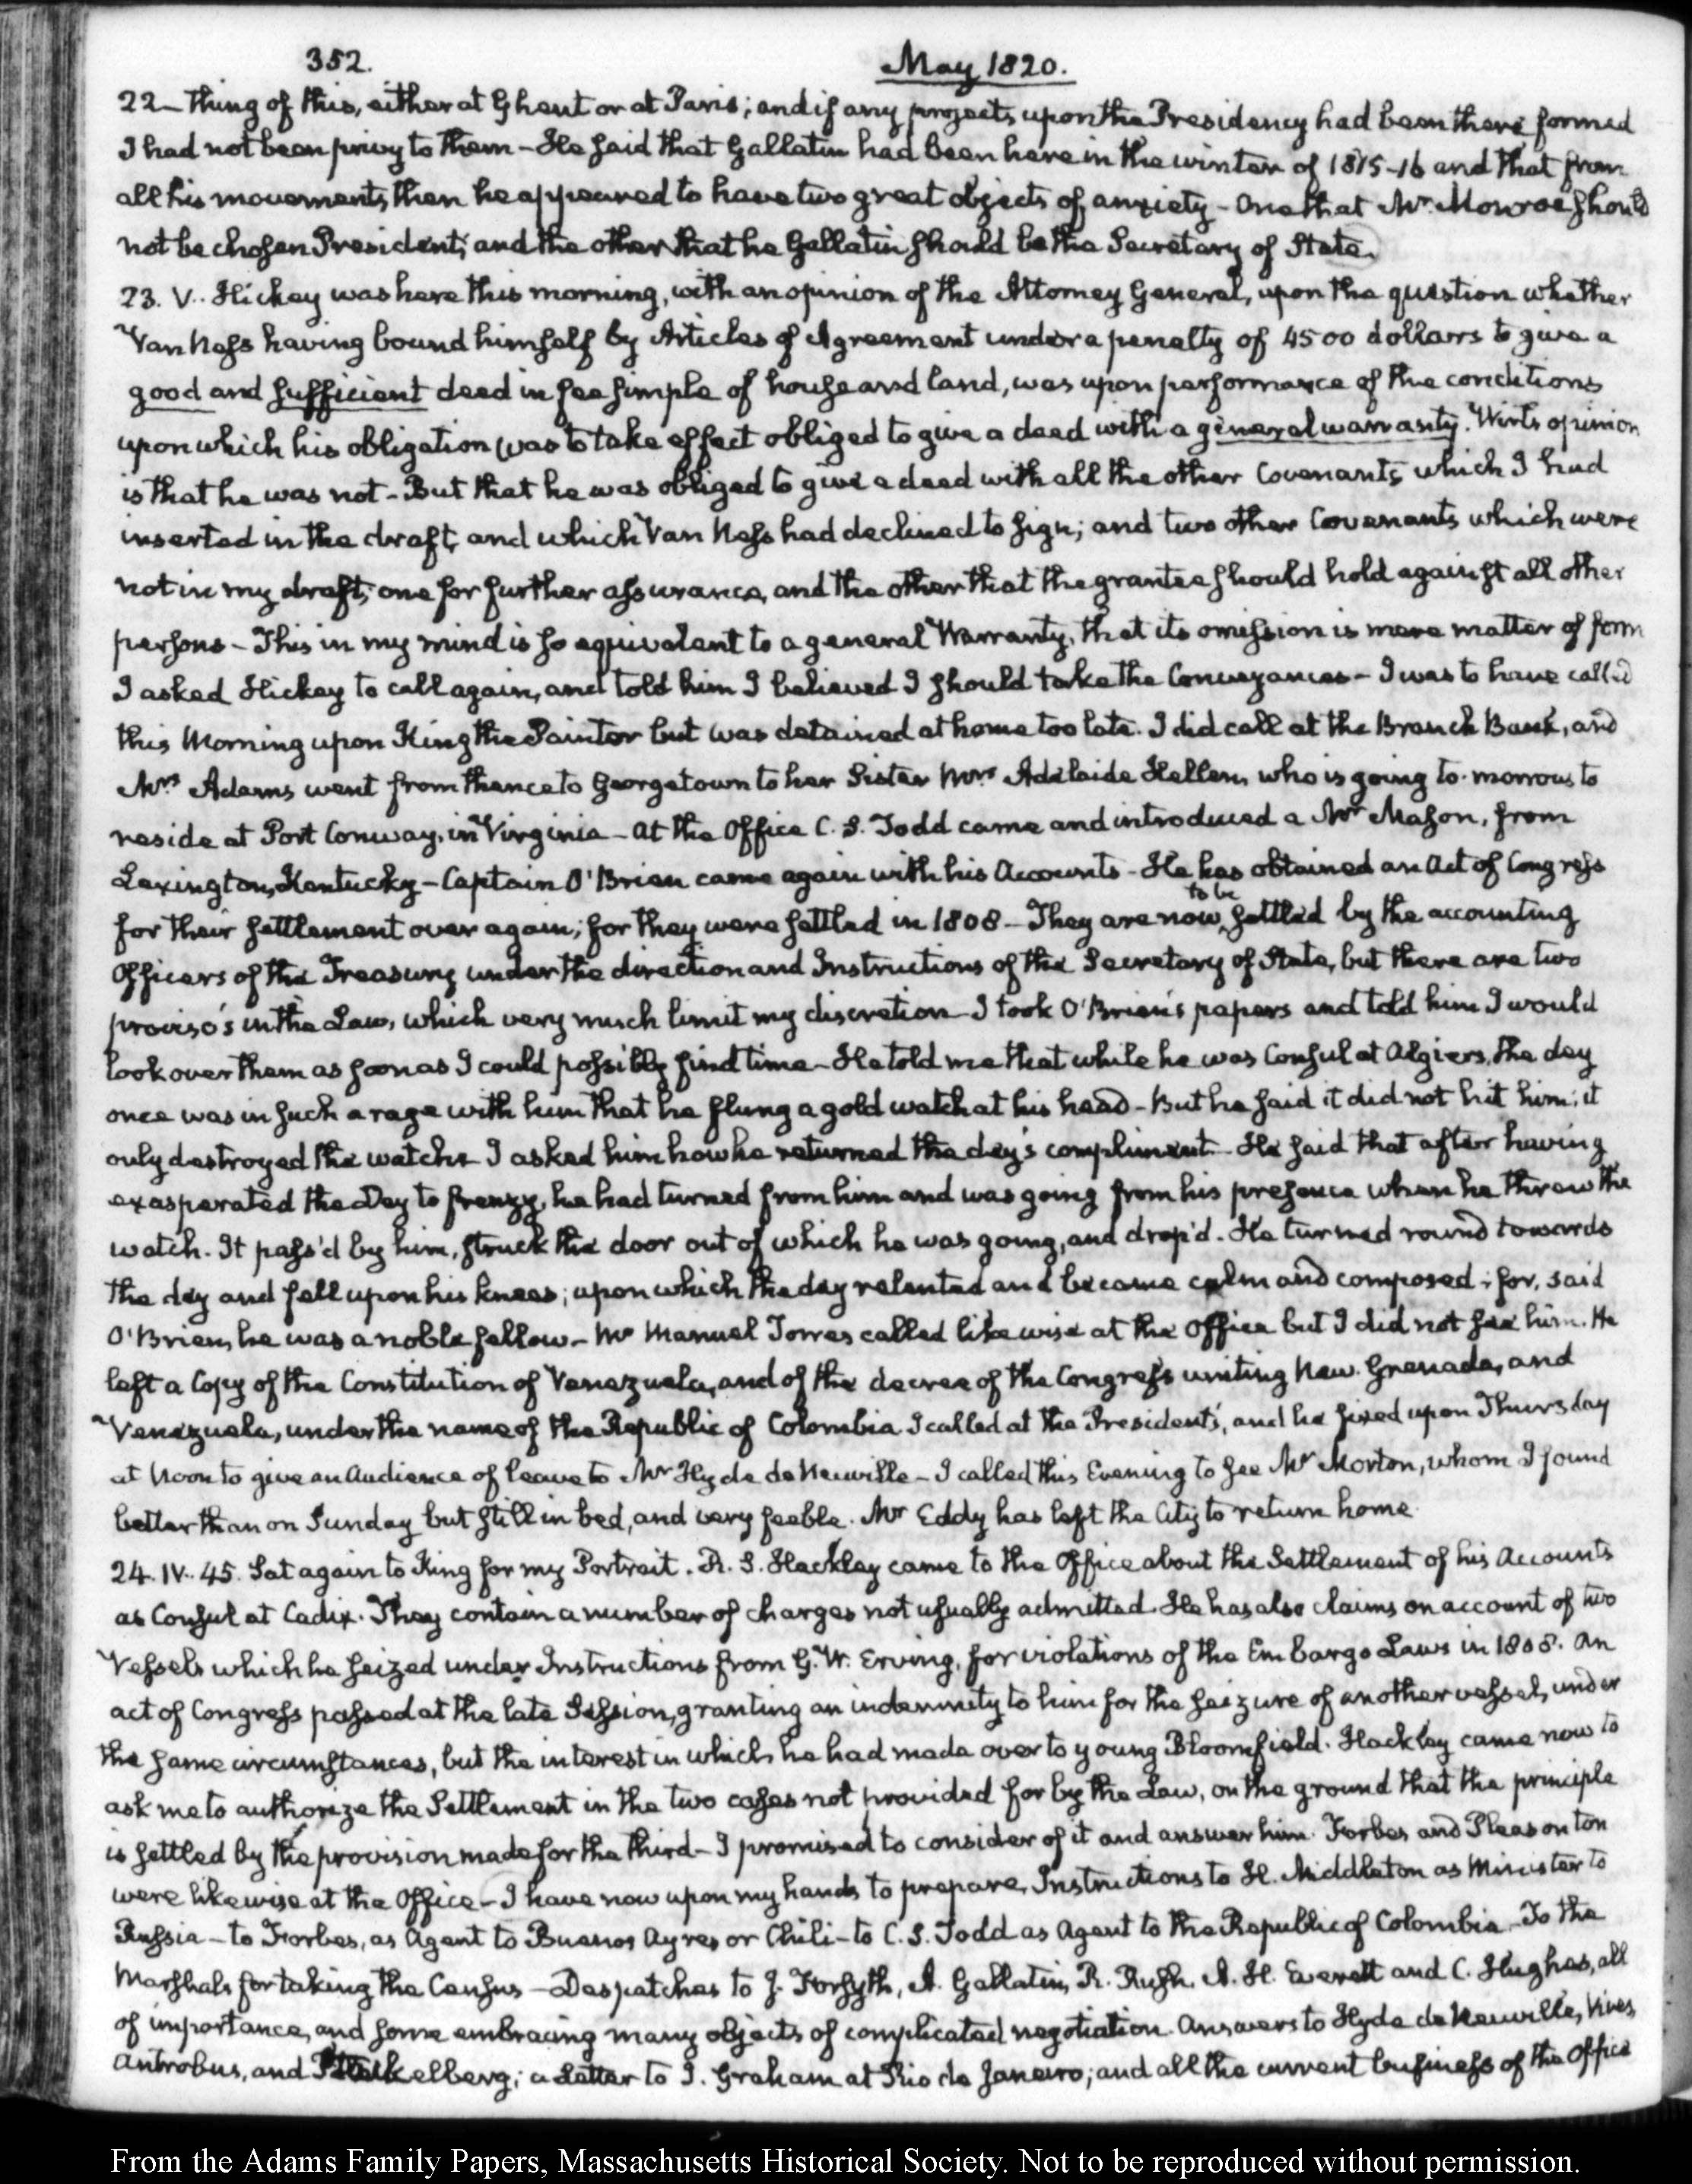 352.
May 1820.
22_ thing of this, either at Ghent or at Paris; and if any projects upon the Presidency had been there formed
I had not been privy to them – He said that Gallatin had been here in the winter of 1815-16 and that from
all his movements then he appeared to have two great objects of anxiety – One that Mr. Monroe should
not be chosen President; and the other that he Gallatin should be the Secretary of State.
23. V.. Hickey was here this morning, with an opinion of the Attorney General, upon the question whether
Van Ness having bound himself by Articles of Agreement under a penalty of 4500 dollars to give a
good and sufficient deed in fee simple of house and land, was upon performance of the conditions
upon which his obligation was to take effect obliged to give a deed with a general warranty. Wirt's opinion
is that he was not – But that he was obliged to give a deed with all the other Covenants which I had
inserted in the draft, and which Van Ness had declined to sign; and two other Covenants which were
not in my draft; one for further assurance, and the other that the grantee should hold against all other
persons – This in my mind is so equivalent to a general Warranty, that its omission is mere matter of form
I asked Hickey to call again, and told him I believed I should take the Conveyances – I was to have called
this Morning upon King the Painter but was detained at home too late. I did call at the Branch Bank, and
Mrs Adams went from thence to Georgetown to her Sister Mrs Adelaide Hellen, who is going to-morrow to
reside at Port Conway, in Virginia – At the Office C. S. Todd came and introduced a Mr Mason, from
Lexington, Kentucky – Captain O'Brien came again with his Accounts – He has obtained an Act of Congress
for their settlement over again; for they were settled in 1808 – They are now to be settled by the accounting
Officers of the Treasury under the direction and Instructions of the Secretary of State, but there are two
proviso's in the Law, which very much limit my discretion – I took O'Brien's papers and told him I would
look over them as soon as I could possibly find time – He told me that while he was Consul at Algiers, the dey
once was in such a rage with him that he flung a gold watch at his head – But he said it did not hit him; it
only destroyed the watch – I asked him how he returned the dey's compliment – He said that after having
exasperated the Dey to frenzy, he had turned from him and was going from his presence when he threw the
watch. It pass'd by him, struck the door out of which he was going, and drop'd. He turned round towards
the dey and fell upon his knees; upon which the dey relented and became calm and composed; for, said
O'Brien, he was a noble fellow. – Mr Manuel Torres called likewise at the Office but I did not see him. He
left a Copy of the Constitution of Venezuela, and of the decree of the Congress uniting New Grenada, and
Venezuela, under the name of the Republic of Colombia I called at the President's, and he fixed upon Thursday
at Noon to give an Audience of leave to Mr Hyde de Neuville – I called this Evening to see Mr Morton, whom I found
better than on Sunday but still in bed, and very feeble. Mr Eddy has left the City to return home.
24. IV.. 45. Sat again to King for my Portrait. R. S. Hackley came to the Office about the Settlement of his Accounts
as Consul at Cadix. They contain a number of charges not usually admitted. He has also claims on account of two
Vessels which he seized under Instructions from G. W. Erving, for violations of the Embargo Laws in 1808. An
act of Congress passed at the late Session, granting an indemnity to him for the seizure of another vessel, under
the same circumstances, but the interest in which he had made over to young Bloomfield. Hackley came now to
ask me to authorize the Settlement in the two cases not provided for by the Law, on the ground that the principle
is settled by the provision made for the third – I promised to consider of it and answer him. Forbes and Pleasonton
were likewise at the Office – I have now upon my hands to prepare, Instructions to H. Middleton as Minister to
Russia – to Forbes, as Agent to Buenos Ayres or Chili – to C. S. Todd as Agent to the Republic of Colombia – To the
Marshals for taking the Census – Despatches to J. Forsyth, A. Gallatin, R. Rush, A. H. Everett and C. Hughes, all
of importance, and some embracing many objects of complicated negotiation. Answers to Hyde de Neuville, Vives,
Antrobus, and Stackelberg; a Letter to J. Graham at Rio de Janeiro; and all the current business of the Office
From the Adams Family Papers, Massachusetts Historical Society. Not to be reproduced without permission.